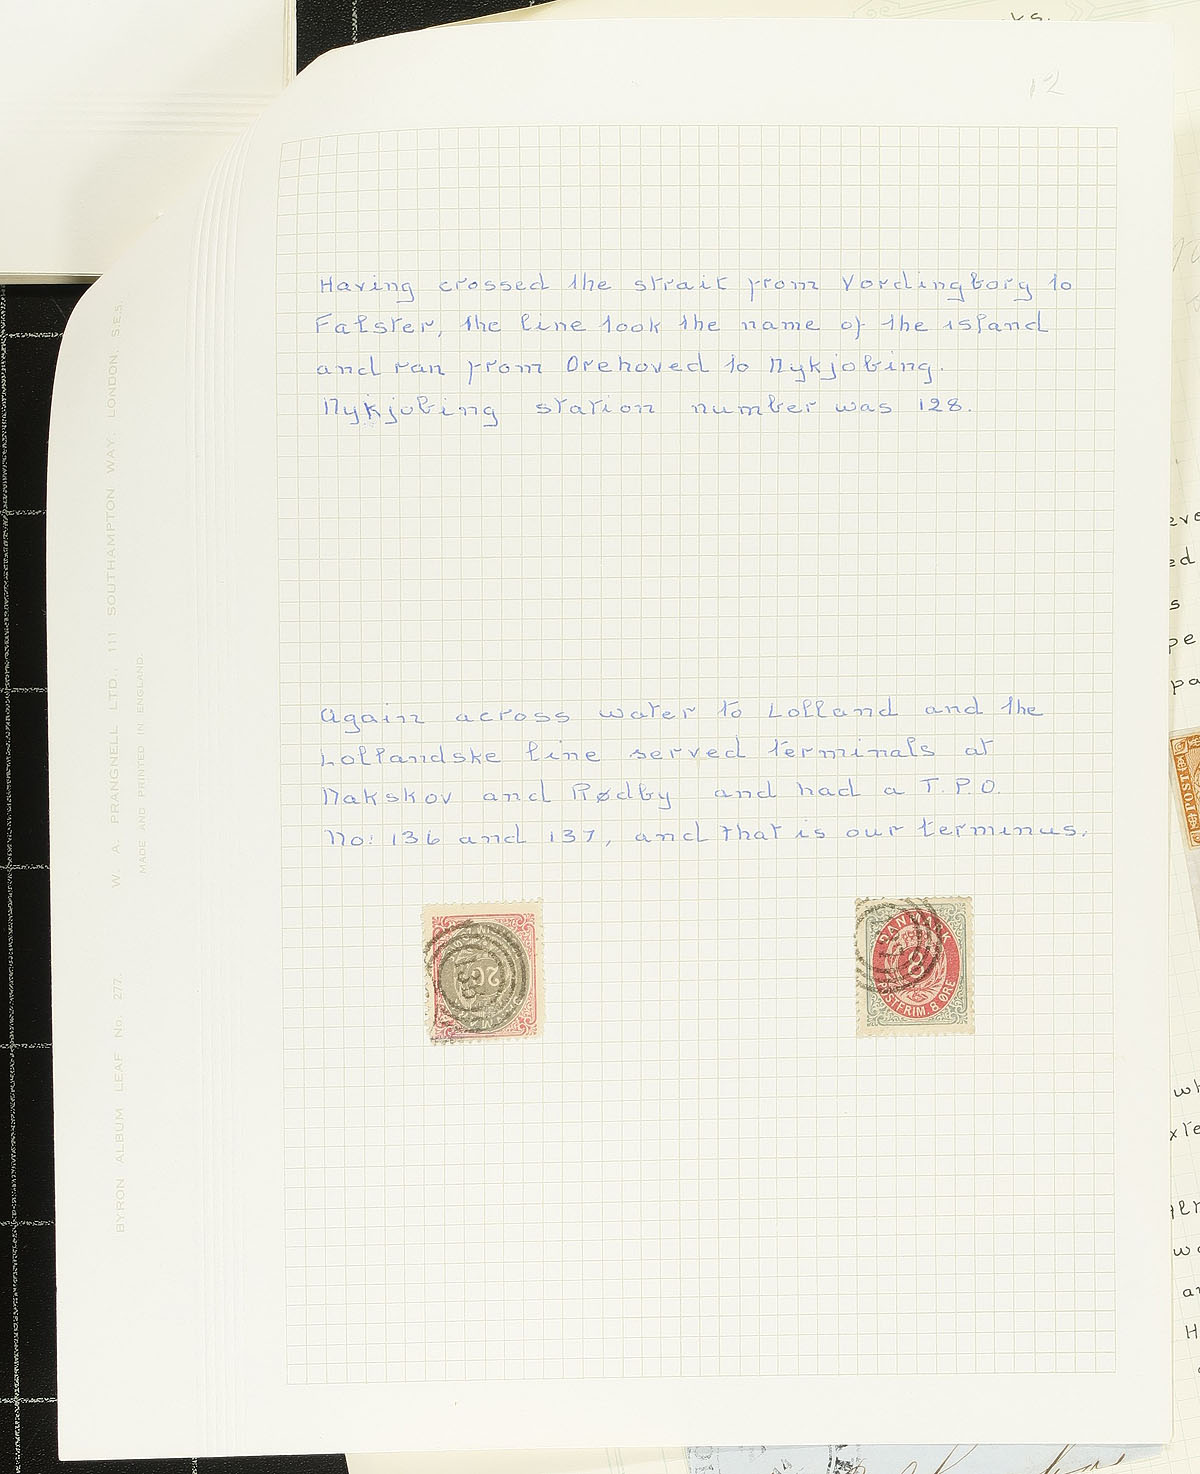 12
Having crossed the strait from Vordingborg to
Falster, the line took the name of the island
and ran from Orehoved to Nykjobing.
Nykjobing station number was 128.
Again across water to Lolland and the
Lollandske line served terminals at
Nakskov and Rødby and had a T.P.O.
No: 136 and 137, and that is our terminus.
DANMARK
8
POSTFRIM. 8 ØRE
20
BYRON ALBUM LEAF No. 277. W. A. PRANGNELL LTD., 111 SOUTHAMPTON WAY, LONDON, S.E.5.
MADE AND PRINTED IN ENGLAND.
POST